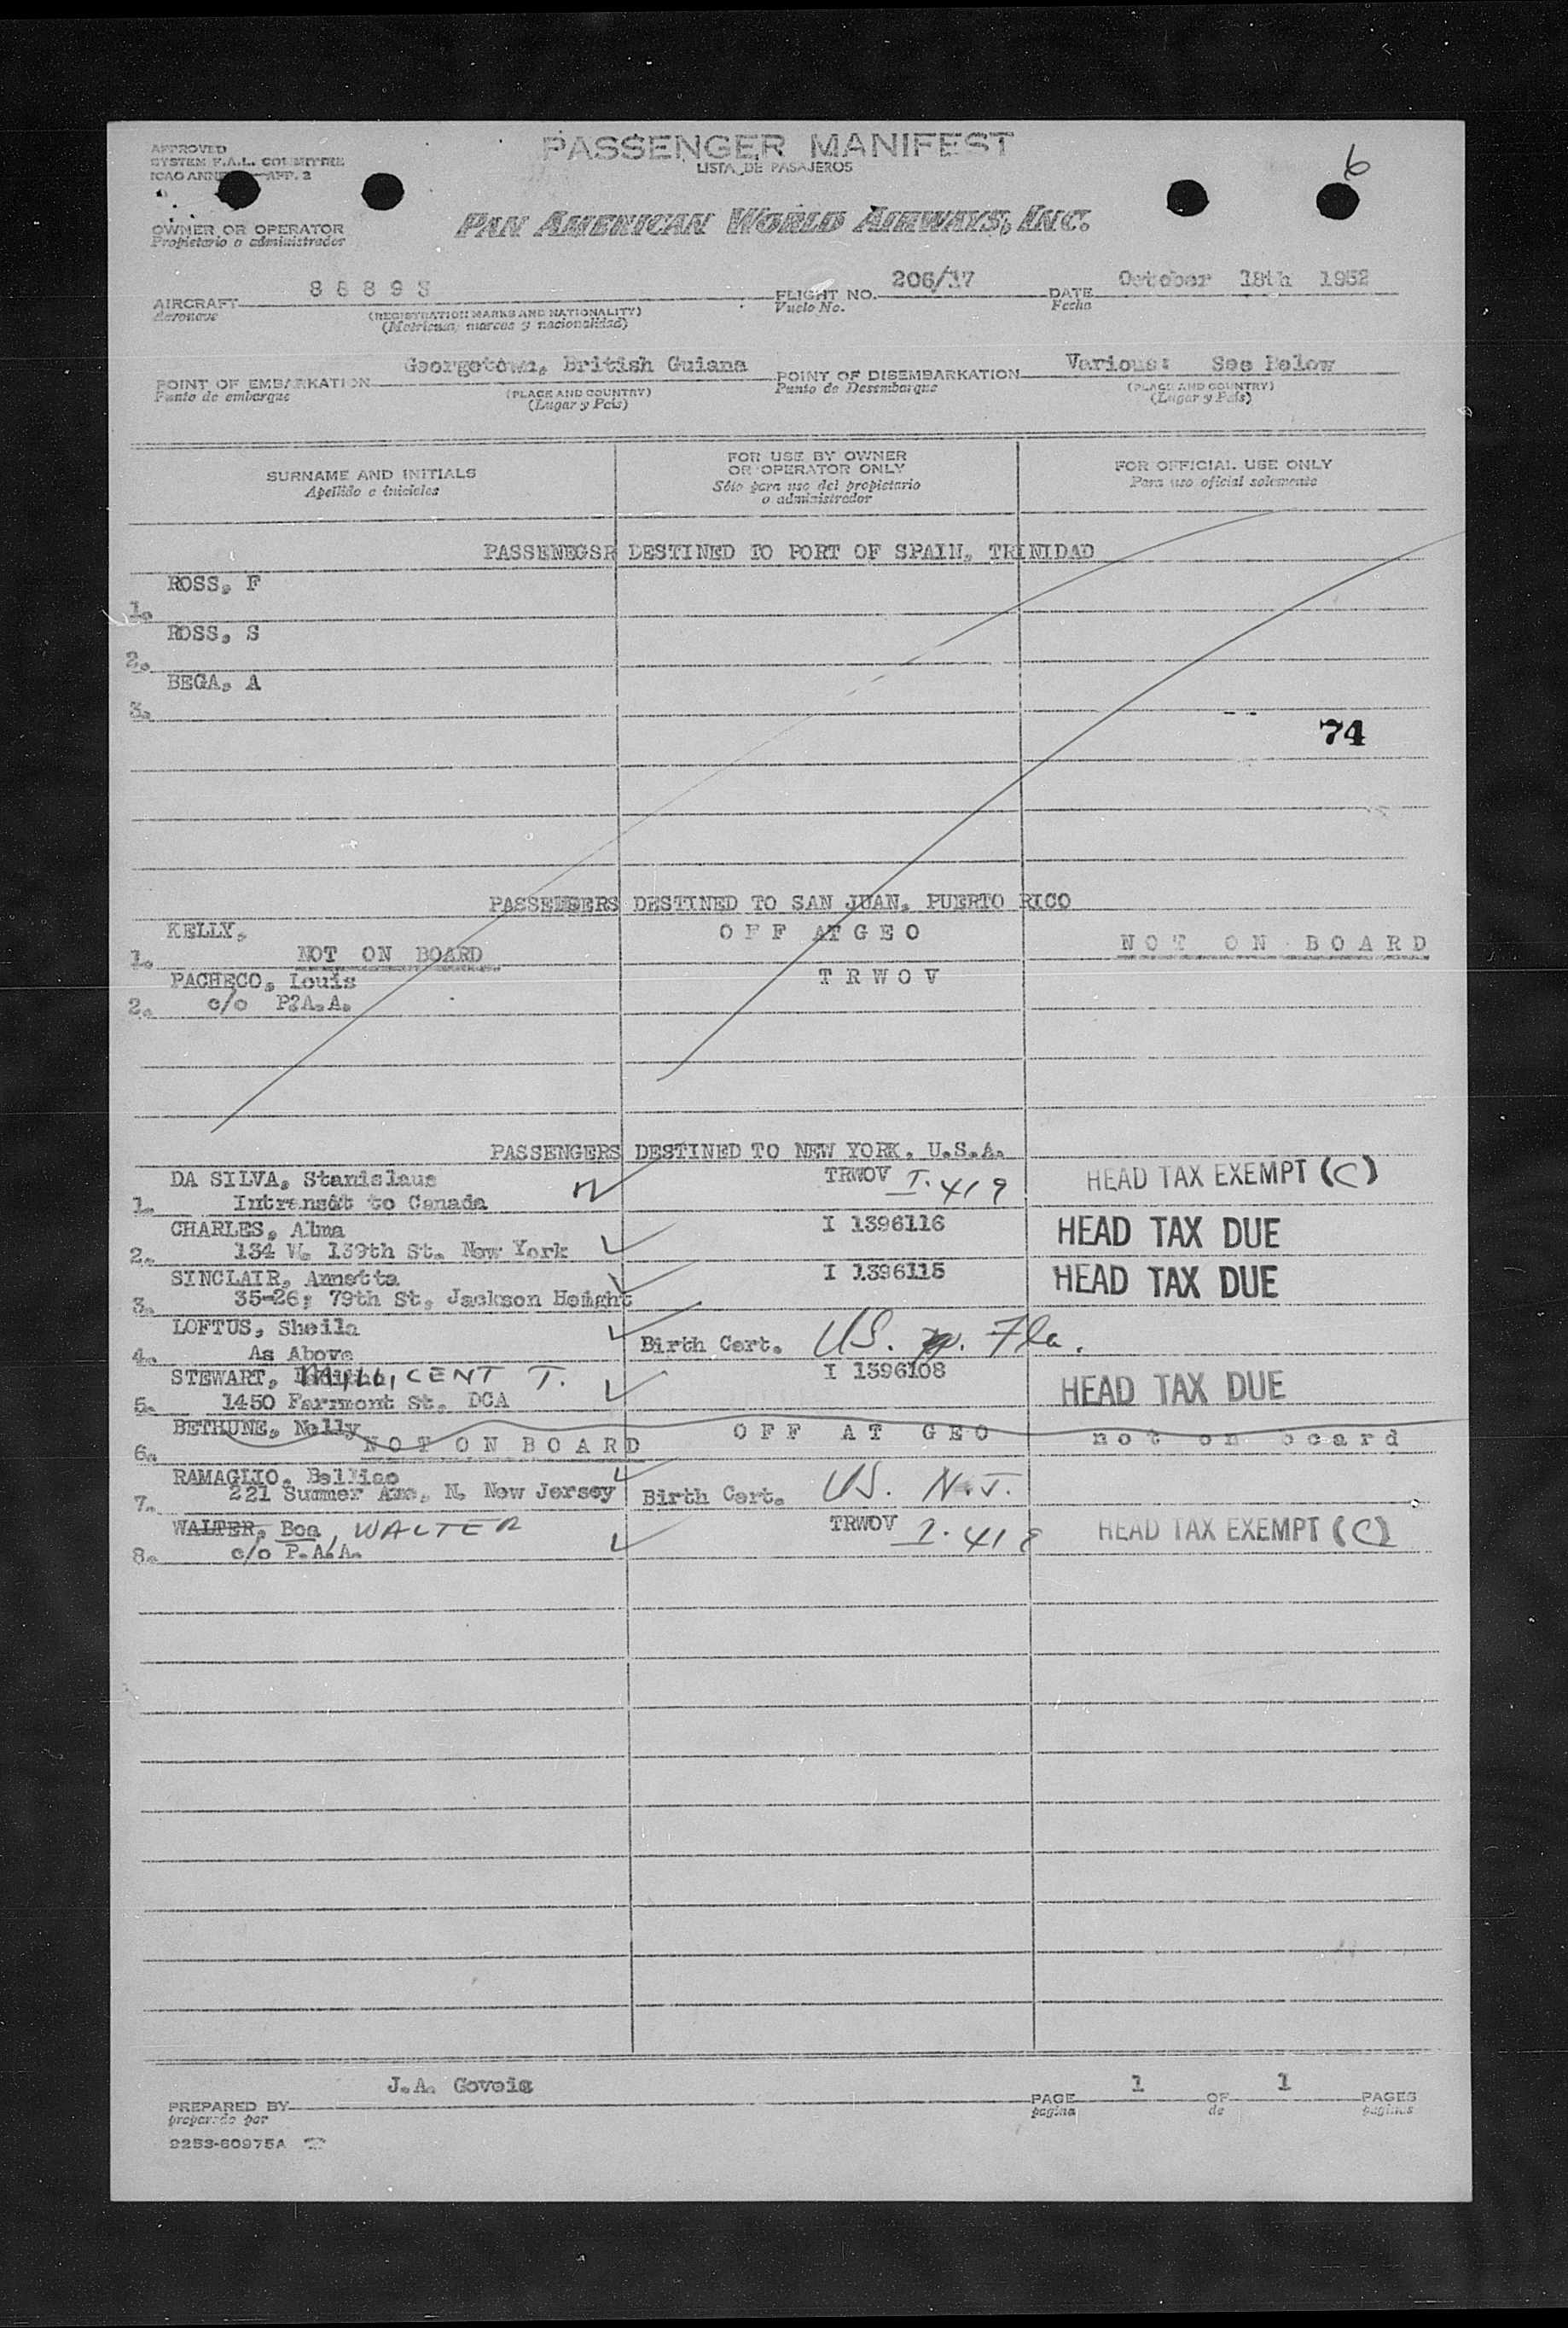 APPROVED
SYSTEM F.A.L. COMMITTEE
ICAO ANNEX APP. 2
PASSENGER MANIFEST
LISTA DE PASAJEROS
6
OWNER OR OPERATOR
Propietario o administrador
PAN AMERICAN WORLD AIRWAYS, INC.
AIRCRAFT 88893 FLIGHT NO. 206/17 DATE October 18th 1952
Aeronave (REGISTRATION MARKS AND NATIONALITY) Vuelo No. Fecha
(Matrícula, marcas y nacionalidad)
POINT OF EMBARKATION Georgetown, British Guiana POINT OF DISEMBARKATION Various: See Below
Punto de embarque (PLACE AND COUNTRY) Punto de Desembarque (PLACE AND COUNTRY)
(Lugar y País) (Lugar y País)
SURNAME AND INITIALS FOR USE BY OWNER OR OPERATOR ONLY FOR OFFICIAL USE ONLY
Apellido e iniciales Sólo para uso del propietario o administrador Para uso oficial solamente
PASSENEGSR DESTINED TO PORT OF SPAIN, TRINIDAD
ROSS, F
1.
ROSS, S
2.
BEGA, A
3.
74
PASSENGERS DESTINED TO SAN JUAN, PUERTO RICO
KELLY, O F F AT G E O
1. NOT ON BOARD N O T O N B O A R D
PACHECO, Louis T R W O V
2. c/o P?A.A.
PASSENGERS DESTINED TO NEW YORK, U.S.A.
DA SILVA, Stanislaus TRWOV I. 419 HEAD TAX EXEMPT (C)
1. Intransit to Canada
CHARLES, Alma I 1396116 HEAD TAX DUE
2. 134 W. 139th St. New York
SINCLAIR, Annetta I 1396115 HEAD TAX DUE
3. 35-26; 79th St, Jackson Height
LOFTUS, Sheila
4. As Above Birth Cert. US. Fla.
STEWART, MILLICENT T. I 1396108 HEAD TAX DUE
5. 1450 Fairmont St. DCA
BETHUNE, Nelly O F F A T G E O n o t o n b o a r d
6. N O T O N B O A R D
RAMAGLIO, Bellico
7. 221 Summer Ave, N. New Jersey Birth Cert. US. N.J.
WALTER, Boa, WALTER TRWOV I. 419 HEAD TAX EXEMPT (C)
8. c/o P.A.A.
PREPARED BY J.A. Goveia PAGE 1 OF 1 PAGES
preparado por página de páginas
9253-60975A